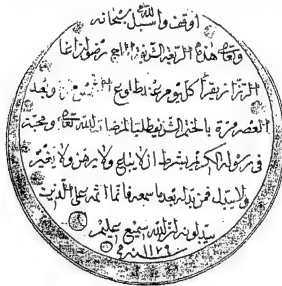 اوقف وسبل لله سبحانه
وتعالى هذه الربعة الشريفة الحاج رضوان اغا
الرزاز يقرأ كل يوم عند طلوع الشمس وبعد
العصر مرة بالختم الشريف طلبا لمرضات الله تعالى ومحبة
في رسوله الكريم بشرط ان لا يباع ولا يرهن ولا يغير
ولا يبدل فمن بدله بعد ما سمعه فانما اثمه على الذين
يبدلونه ان الله سميع عليم
سنة ١٢٩